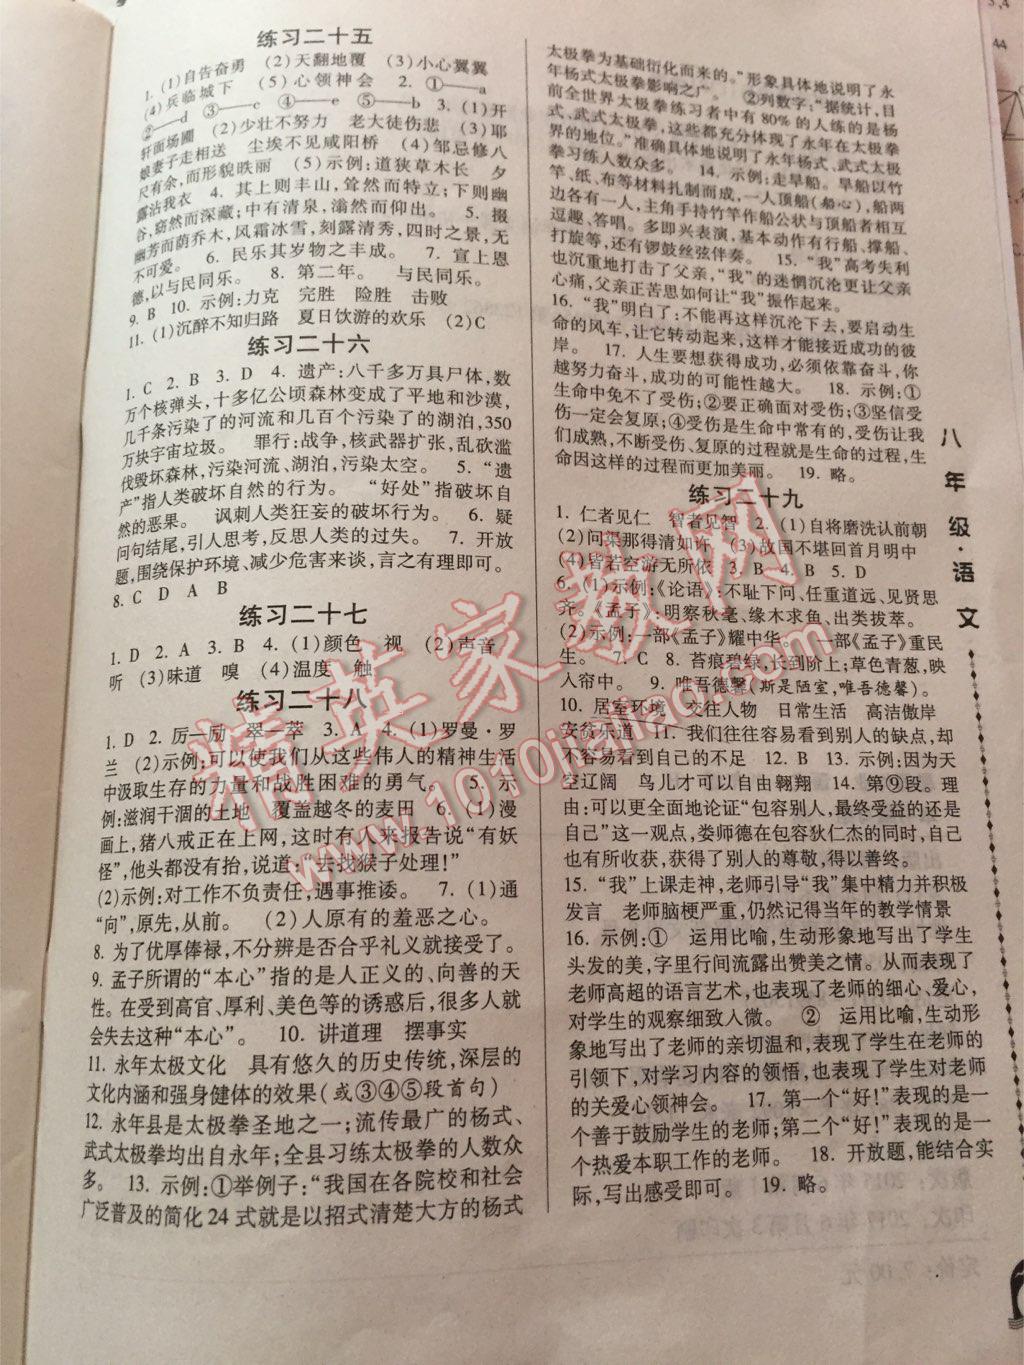 练习二十五
1. (1)自告奋勇 (2)天翻地覆 (3)小心翼翼
(4)兵临城下 (5)心领神会 2. ①——a
②——d ③——c ④——e ⑤——b 3. (1)开
轩面场圃 (2)少壮不努力 老大徒伤悲 (3)耶
娘妻子走相送 尘埃不见咸阳桥 (4)邹忌修八
尺有余,而形貌昳丽 (5)示例:道狭草木长 夕
露沾我衣 4. 其上则丰山,耸然而特立;下则幽
谷,窈然而深藏;中有清泉,滃然而仰出。 5. 掇
幽芳而荫乔木,风霜冰雪,刻露清秀,四时之景,无
不可爱。 6. 民乐其岁物之丰成。 7. 宣上恩
德,以与民同乐。 8. 第二年。 与民同乐。
9. B 10. 示例:力克 完胜 险胜 击败
11. (1)沉醉不知归路 夏日饮游的欢乐 (2)C
练习二十六
1. C 2. B 3. D 4. 遗产:八千多万具尸体,数
万个核弹头,十多亿公顷森林变成了平地和沙漠,
几千条污染了的河流和几百个污染了的湖泊,350
万块宇宙垃圾。 罪行:战争,核武器扩张,乱砍滥
伐毁坏森林,污染河流、湖泊,污染太空。 5. “遗
产”指人类破坏自然的行为。 “好处”指破坏自
然的恶果。 讽刺人类狂妄的破坏行为。 6. 疑
问句结尾,引人思考,反思人类的过失。 7. 开放
题,围绕保护环境、减少危害来谈,言之有理即可。
8. C D A B
练习二十七
1. D 2. A 3. B 4. (1)颜色 视 (2)声音
听 (3)味道 嗅 (4)温度 触
练习二十八
1. D 2. 厉—励 翠—萃 3. A 4. (1)罗曼·罗
兰 (2)示例:可以使我们从这些伟人的精神生活
中汲取生存的力量和战胜困难的勇气。 5. 示
例:滋润干涸的土地 覆盖越冬的麦田 6. (1)漫
画上,猪八戒正在上网,这时有人来报告说“有妖
怪”,他头都没有抬,说道:“去找猴子处理!”
(2)示例:对工作不负责任,遇事推诿。 7. (1)通
“向”,原先,从前。 (2)人原有的羞恶之心。
8. 为了优厚俸禄,不分辨是否合乎礼义就接受了。
9. 孟子所谓的“本心”指的是人正义的、向善的天
性。在受到高官、厚利、美色等的诱惑后,很多人就
会失去这种“本心”。 10. 讲道理 摆事实
11. 永年太极文化 具有悠久的历史传统,深层的
文化内涵和强身健体的效果(或③④⑤段首句)
12. 永年县是太极拳圣地之一;流传最广的杨式、
武式太极拳均出自永年;全县习练太极拳的人数众
多。 13. 示例:①举例子:“我国在各院校和社会
广泛普及的简化24式就是以招式清楚大方的杨式
太极拳为基础衍化而来的。”形象具体地说明了永
年杨式太极拳影响之广。 ②列数字:“据统计,目
前全世界太极拳练习者中有80%的人练的是杨
式、武式太极拳,这些都充分体现了永年在太极拳
界的地位。”准确具体地说明了永年杨式、武式太极
拳习练人数众多。 14. 示例:走旱船。旱船以竹
竿、纸、布等材料扎制而成,一人顶船(船心),船两
边各有一人,主角手持竹竿作船公状与顶船者相互
逗趣、答唱。多即兴表演,基本动作有行船、撑船、
打旋等,还有锣鼓丝弦伴奏。 15. “我”高考失利
也沉重地打击了父亲,“我”的迷惘沉沦更让父亲
心痛,父亲正苦思如何让“我”振作起来。
16. “我”明白了:不能再这样沉沦下去,要启动生
命的风车,让它转动起来,这样才能接近成功的彼
岸。 17. 人生要想获得成功,必须依靠奋斗,你
越努力奋斗,成功的可能性越大。 18. 示例:①
生命中免不了受伤;②要正确面对受伤;③坚信受
伤一定会复原;④受伤是生命中常有的,受伤让我
们成熟,不断受伤、复原的过程就是生命的过程,生
命因这样的过程而更加美丽。 19. 略。
练习二十九
1. 仁者见仁 智者见智 2. (1)自将磨洗认前朝
(2)问渠那得清如许 (3)故国不堪回首月明中
(4)皆若空游无所依 3. B 4. B 5. D
6. (1)示例:《论语》:不耻下问、任重道远、见贤思
齐。《孟子》:明察秋毫、缘木求鱼、出类拔萃。
(2)示例:一部《孟子》耀中华 一部《孟子》重民
生。 7. C 8. 苔痕碧绿,长到阶上;草色青葱,映
入帘中。 9. 唯吾德馨(斯是陋室,唯吾德馨)。
10. 居室环境 交往人物 日常生活 高洁傲岸
安贫乐道 11. 我们往往容易看到别人的缺点,却
不容易看到自己的不足 12. B 13. 示例:因为天
空辽阔 鸟儿才可以自由翱翔 14. 第⑨段。理
由:可以更全面地论证“包容别人,最终受益的还是
自己”这一观点,娄师德在包容狄仁杰的同时,自己
也有所收获,获得了别人的尊敬,得以善终。
15. “我”上课走神,老师引导“我”集中精力并积极
发言 老师脑梗严重,仍然记得当年的教学情景
16. 示例:① 运用比喻,生动形象地写出了学生
头发的美,字里行间流露出赞美之情。从而表现了
老师高超的语言艺术,也表现了老师的细心、爱心,
对学生的观察细致入微。 ② 运用比喻,生动形
象地写出了老师的亲切温和,表现了学生在老师的
引领下,对学习内容的领悟,也表现了学生对老师
的关爱心领神会。 17. 第一个“好!”表现的是一
个善于鼓励学生的老师;第二个“好!”表现的是一
个热爱本职工作的老师。 18. 开放题,能结合实
际,写出感受即可。 19. 略。
八年级·语文
精英家教网
www.1010jiajiao.com